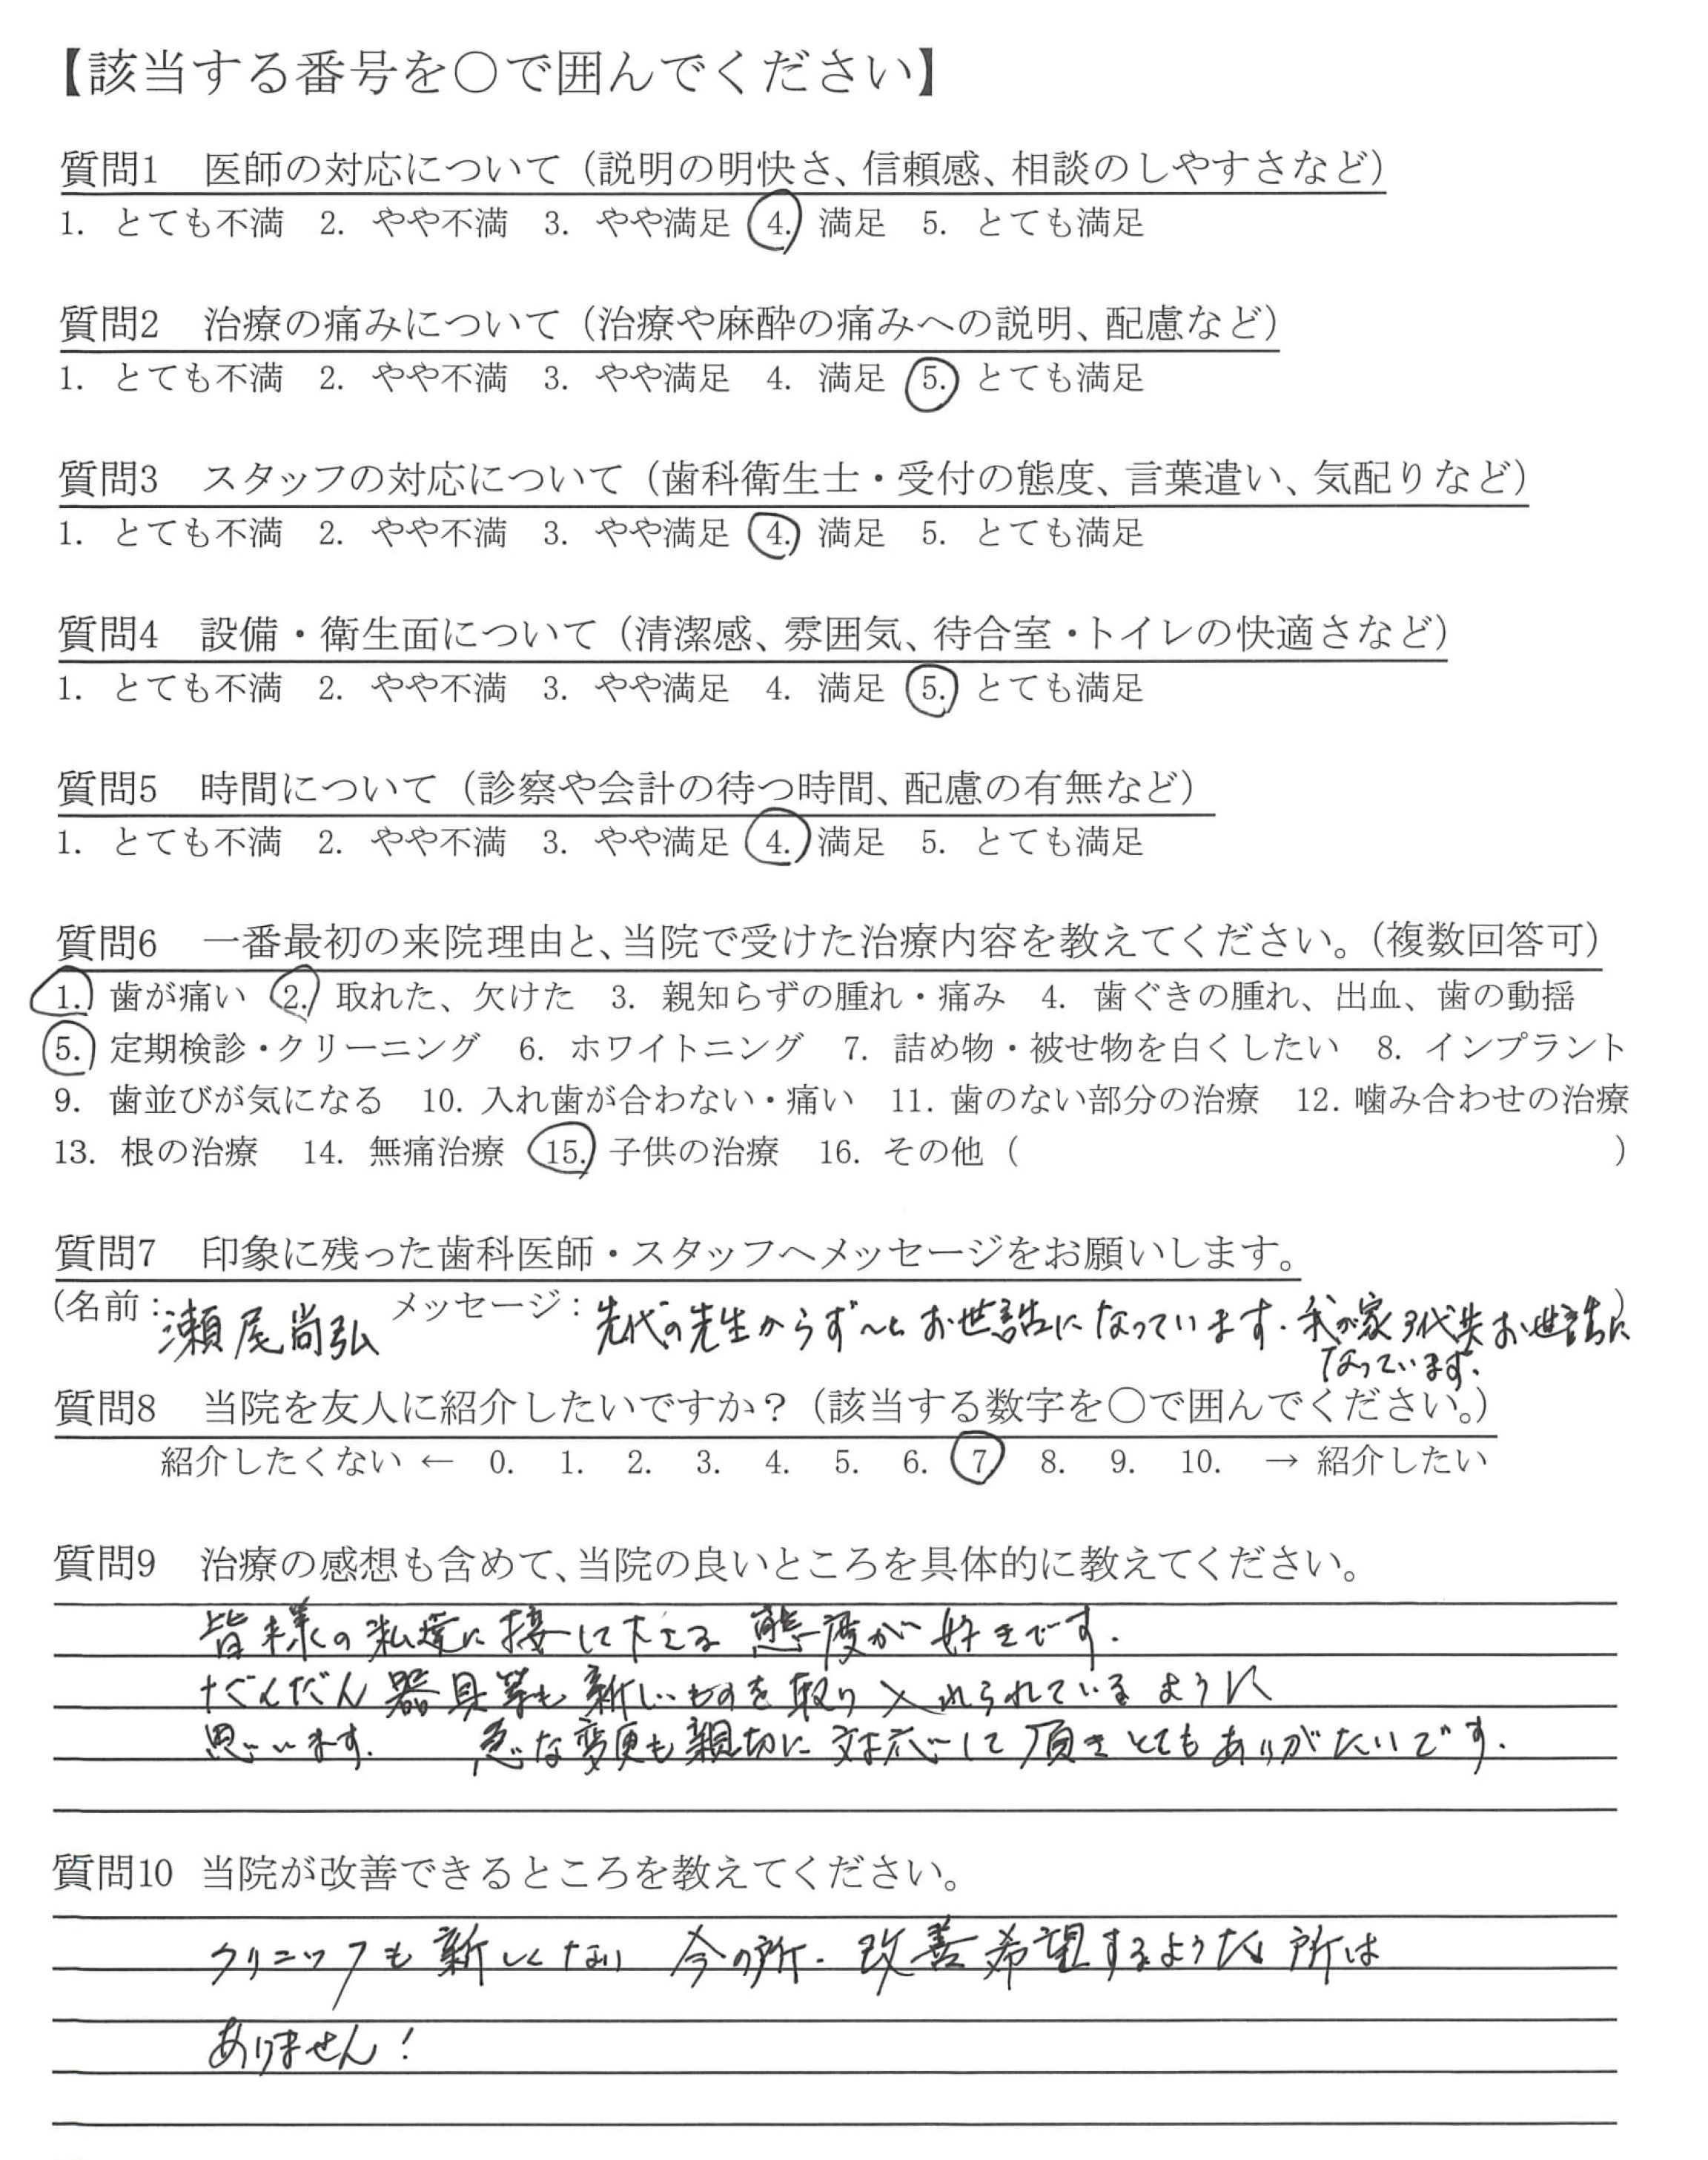 【該当する番号を○で囲んでください】
質問1 医師の対応について（説明の明快さ、信頼感、相談のしやすさなど）
1. とても不満 2. やや不満 3. やや満足 4. 満足 5. とても満足
質問2 治療の痛みについて（治療や麻酔の痛みへの説明、配慮など）
1. とても不満 2. やや不満 3. やや満足 4. 満足 5. とても満足
質問3 スタッフの対応について（歯科衛生士・受付の態度、言葉遣い、気配りなど）
1. とても不満 2. やや不満 3. やや満足 4. 満足 5. とても満足
質問4 設備・衛生面について（清潔感、雰囲気、待合室・トイレの快適さなど）
1. とても不満 2. やや不満 3. やや満足 4. 満足 5. とても満足
質問5 時間について（診察や会計の待つ時間、配慮の有無など）
1. とても不満 2. やや不満 3. やや満足 4. 満足 5. とても満足
質問6 一番最初の来院理由と、当院で受けた治療内容を教えてください。（複数回答可）
1. 歯が痛い 2. 取れた、欠けた 3. 親知らずの腫れ・痛み 4. 歯ぐきの腫れ、出血、歯の動揺
5. 定期検診・クリーニング 6. ホワイトニング 7. 詰め物・被せ物を白くしたい 8. インプラント
9. 歯並びが気になる 10. 入れ歯が合わない・痛い 11. 歯のない部分の治療 12. 噛み合わせの治療
13. 根の治療 14. 無痛治療 15. 子供の治療 16. その他（ ）
質問7 印象に残った歯科医師・スタッフへメッセージをお願いします。
（名前：瀬尾尚弘 メッセージ：先代の先生からず〜っとお世話になっています。我が家3代共お世話に）
なっています。
質問8 当院を友人に紹介したいですか？（該当する数字を○で囲んでください。）
紹介したくない ← 0. 1. 2. 3. 4. 5. 6. 7 8. 9. 10. → 紹介したい
質問9 治療の感想も含めて、当院の良いところを具体的に教えてください。
皆様の私達に接して下さる 態度が好きです。
だんだん器具等も新しいものを取り入れられているように
思います。 急な変更も親切に対応して頂きとてもありがたいです。
質問10 当院が改善できるところを教えてください。
クリニックも新しくなり 今の所、改善希望するような所は
ありません！